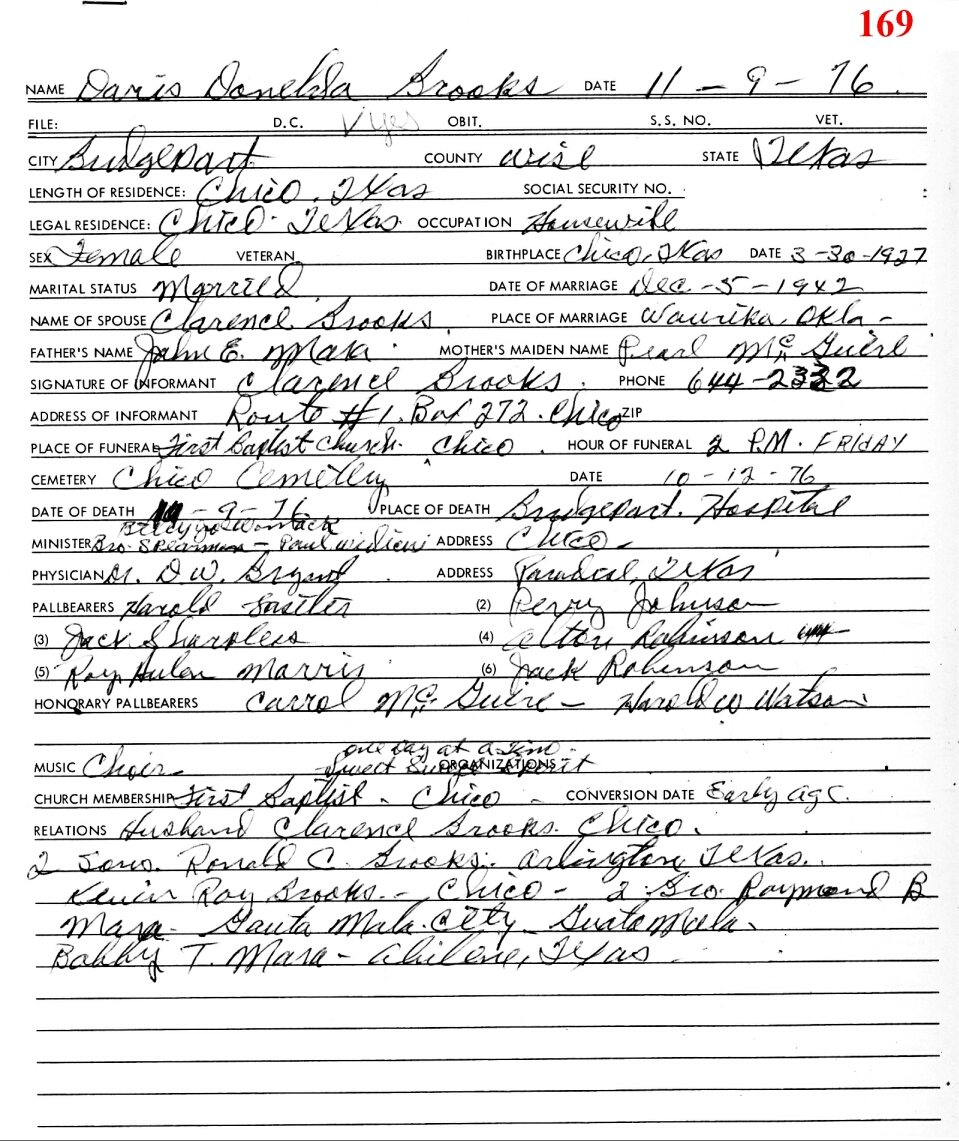 169
NAME Doris Donelda Brooks DATE 11 - 9 - 76
FILE: D.C. Vyes OBIT. S.S. NO. VET.
CITY Bridgeport COUNTY Wise STATE Texas
LENGTH OF RESIDENCE: Chico, Texas SOCIAL SECURITY NO.
LEGAL RESIDENCE: Chico Texas OCCUPATION Housewife
SEX Female VETERAN BIRTHPLACE Chico, Texas DATE 3-30-1927
MARITAL STATUS Married DATE OF MARRIAGE Dec -5-1942
NAME OF SPOUSE Clarence Brooks PLACE OF MARRIAGE Waurika, Okla -
FATHER'S NAME John E. Mara MOTHER'S MAIDEN NAME Pearl McGuire
SIGNATURE OF INFORMANT Clarence Brooks. PHONE 644-2332
ADDRESS OF INFORMANT Route #1. Box 272. Chico ZIP
PLACE OF FUNERAL First Baptist Church. Chico. HOUR OF FUNERAL 2 P.M. FRIDAY
CEMETERY Chico Cemetery DATE 10-12-76
DATE OF DEATH - 9 - 76 PLACE OF DEATH Bridgeport. Hospital
Billy Jo Womack
MINISTER Bro. Spearman - Paul ADDRESS Chico -
PHYSICIAN Dr. D.W. Bryant ADDRESS Paradise, Texas
PALLBEARERS Harold (2) Perry Johnson
(3) Jack Sharpless (4) Alton Robinson
(5) Roy Hulen Morris (6) Jack Robinson
HONORARY PALLBEARERS Carrol McGuire - Harold W Watson
one day at a time -
MUSIC Choir - Sweet Sweet Spirit ORGANIZATIONS
CHURCH MEMBERSHIP First Baptist - Chico - CONVERSION DATE Early age.
RELATIONS Husband Clarence Brooks. Chico.
2 Sons. Ronald C. Brooks. Arlington, Texas.
Kevin Roy Brooks. - Chico - 2 Bro. Raymond B
Mara - Gauta Mala. City - Guatamala.
Bobby T. Mara - Abilene, Texas.